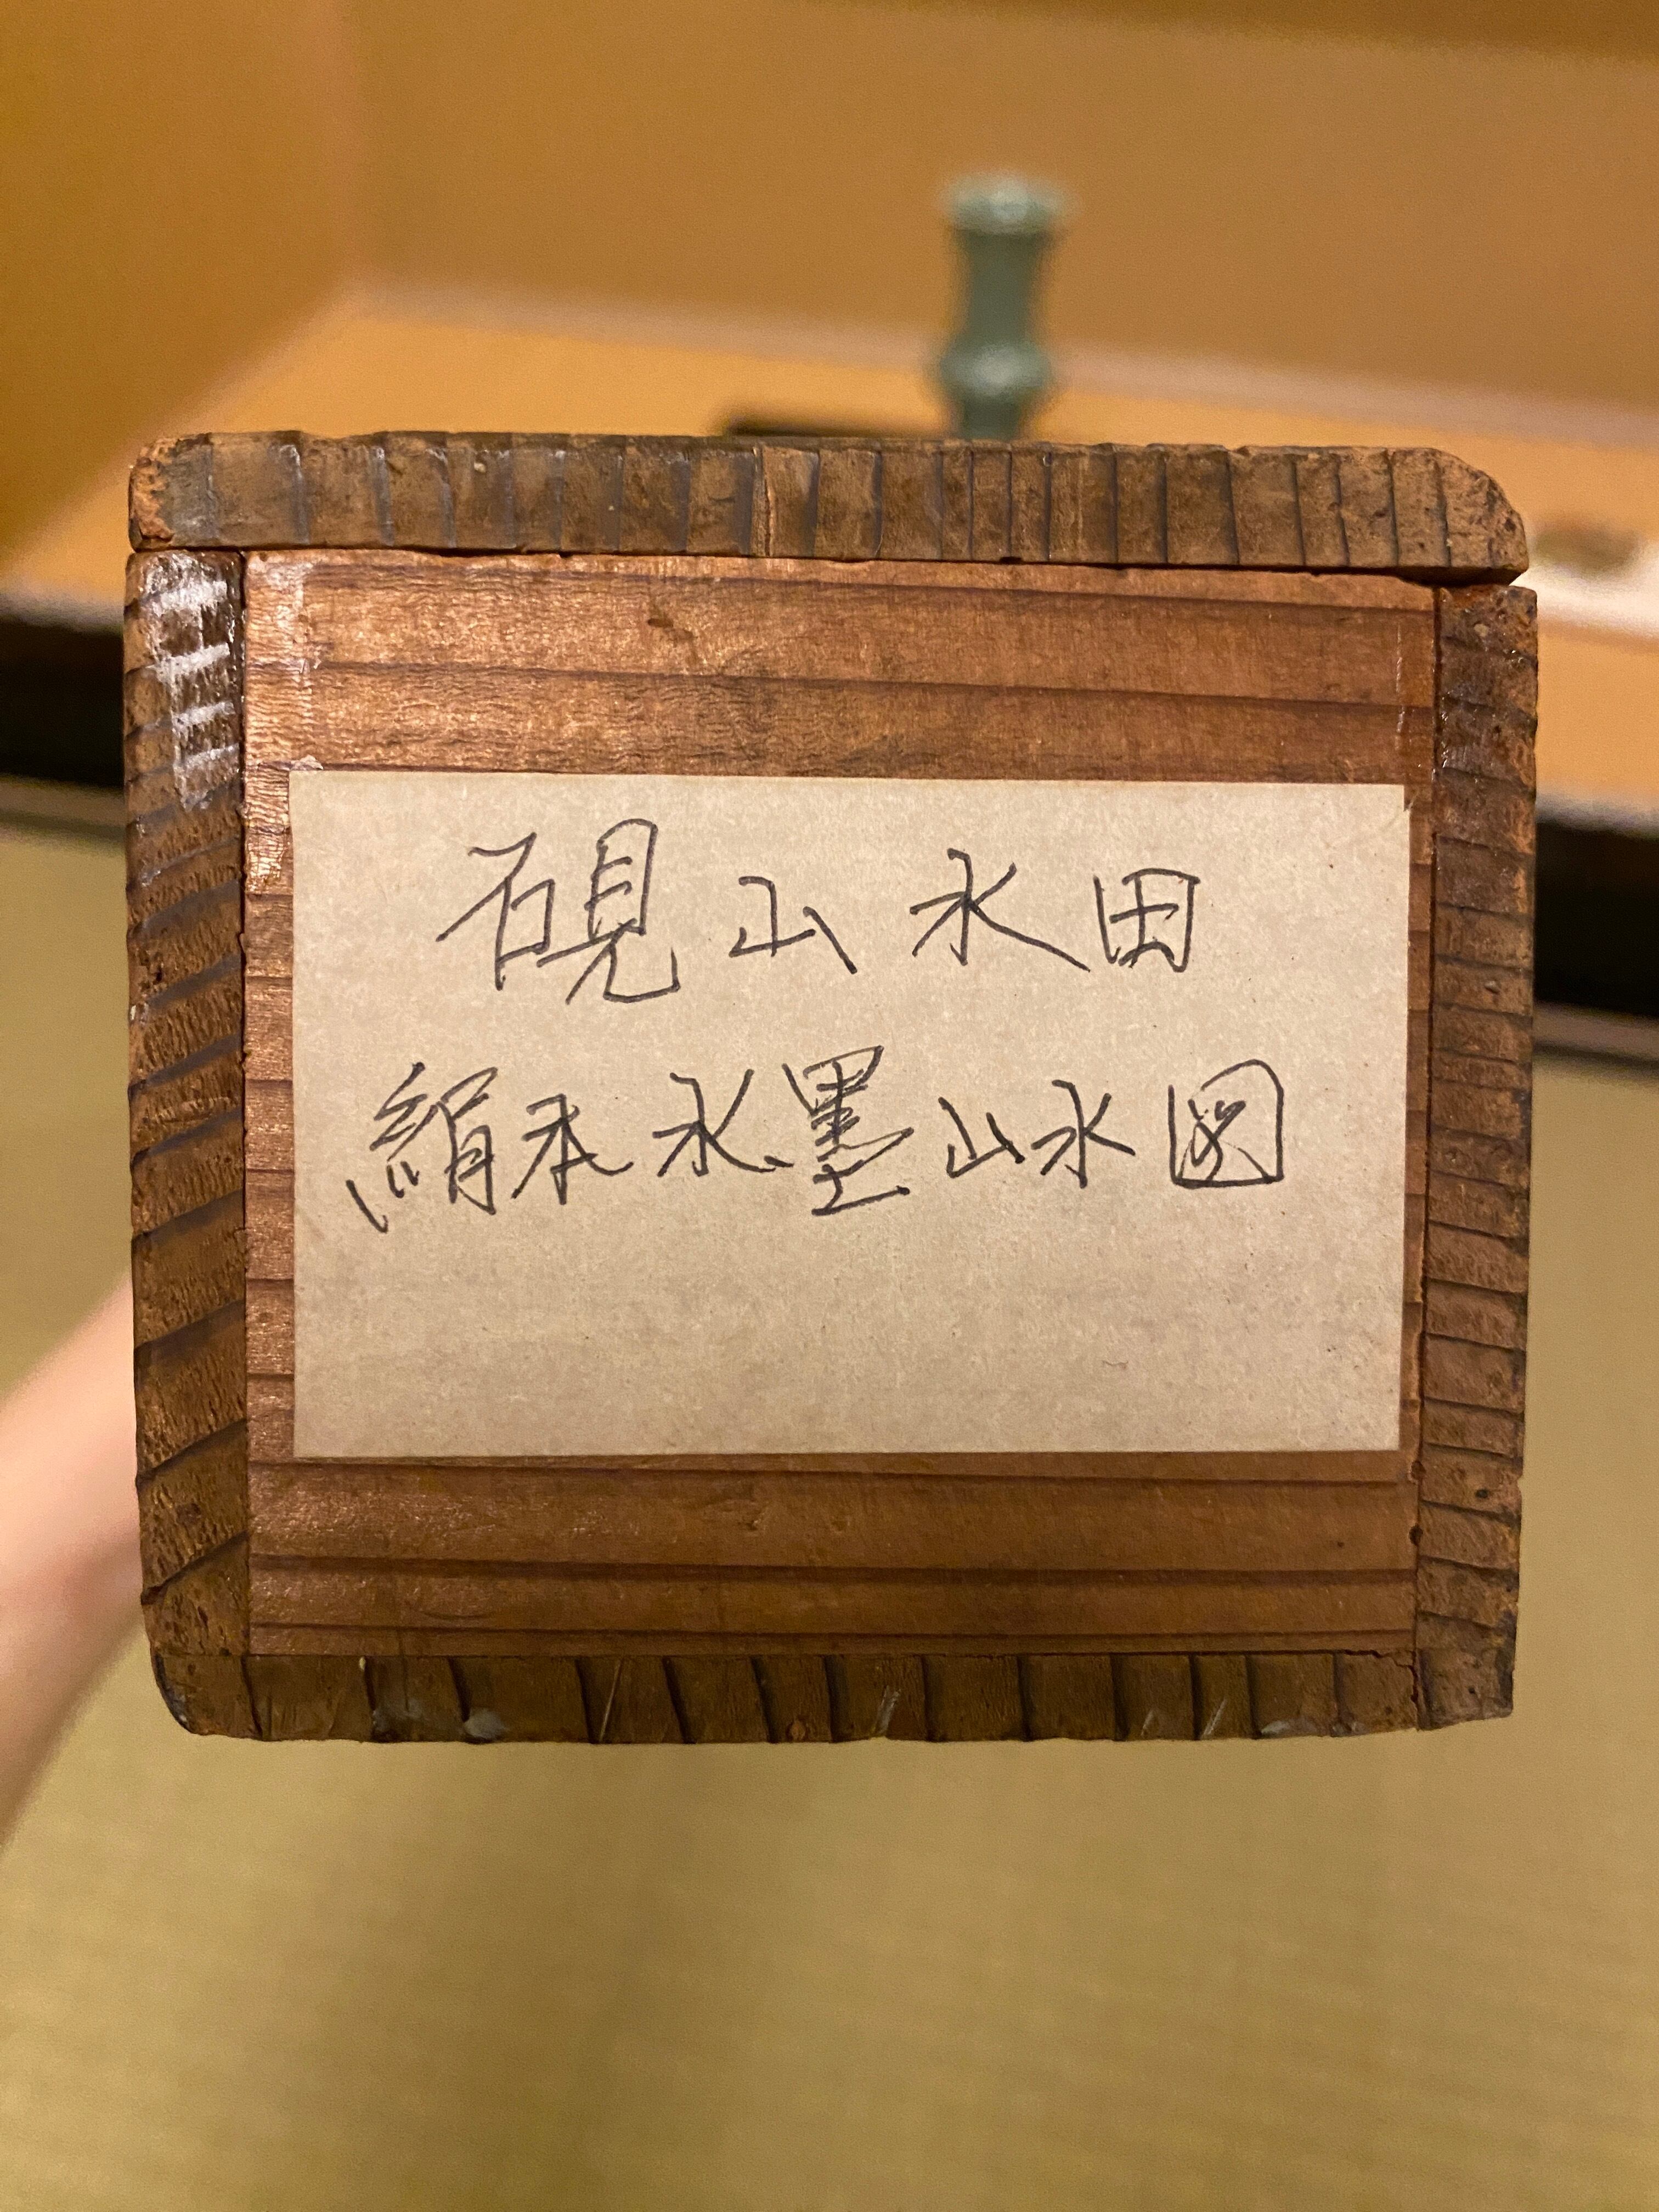 硯山水田
絹本水墨山水図